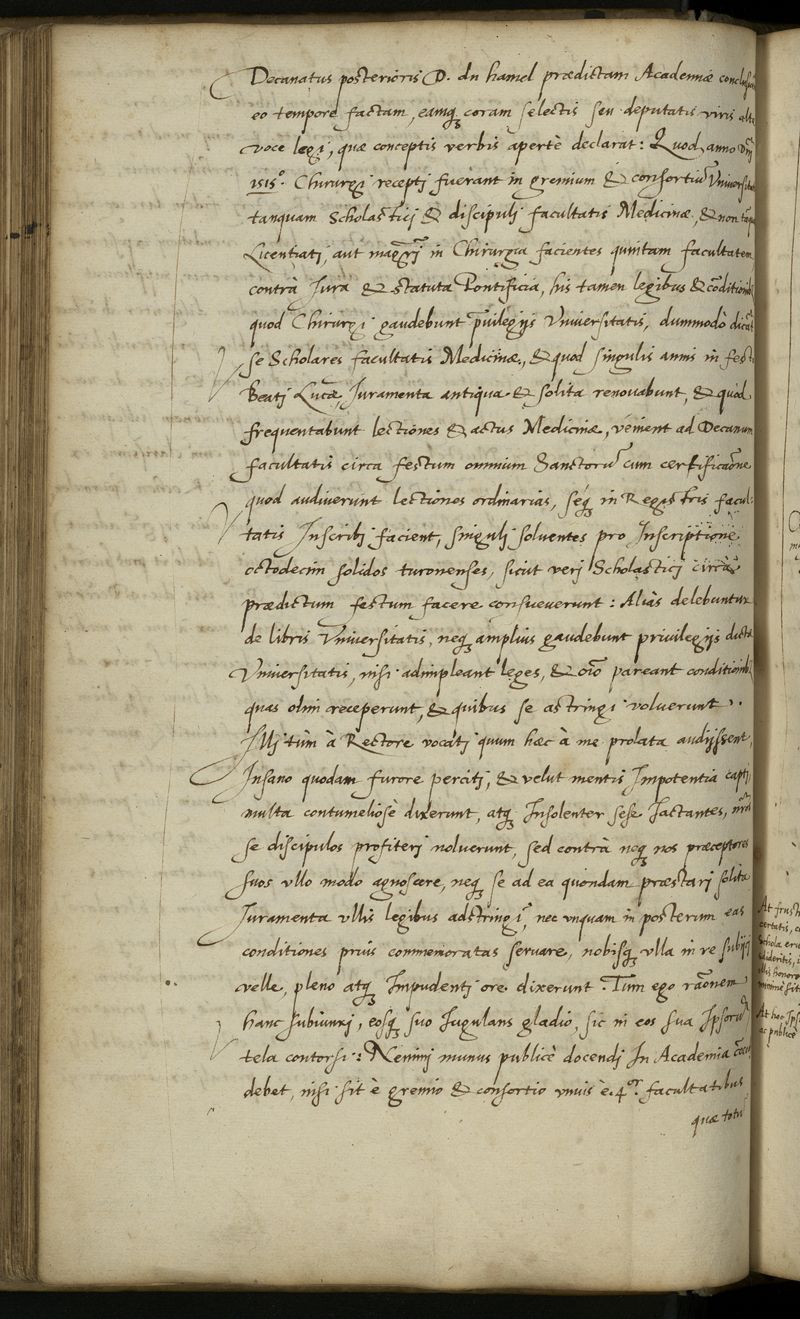 Decanatus posterioris D. du hamel prædictam Academiæ conclusion
eo tempore factam, eamq; coram selectis seu deputatis viris alta
voce legi, quæ conceptis verbis apertè declarat: Quod anno Dnj
1515°. Chirurgi receptj fuerant in gremium & consortiū Vniversita
tanquam Scholasticj & discipulj facultatis Medicinæ, & non tanq
Licentiatj, aut magrj in Chirurgia facientes quintam facultatem
contrà Jura & statuta Pontificia, his tamen legibus & cōditionib
quod Chirurgi gaudebunt priuilegijs Vniuersitatis, dummodò dicāt
se Scholares facultatis Medicinæ, & quod singulis annis in festo
Beatj Lucæ, Juramenta antiqua & solita renovabunt, & quod
frequentabunt lectiones & actus Medicinæ, venient ad Decanum
facultatis circa festum omnium Sanctorū cum certificaōne
quod audiverunt lectiones ordinarias, seq; in Registris facul-
tatis Inscribj facient, singulj soluentes pro Inscriptione
octodecim solidos turonenses, sicut verj Scholasticj circà
prædictum festum facere consueverunt: Aliàs delebuntur
de libris Vniuersitatis, neq; amplius gaudebunt privilegijs dictæ
Vniuersitatis, nisi adimpleant leges, & oīo pareant conditionib
quas olim receperunt, & quibus se astringi voluerunt.
Illj tùm à Rectore vocatj quum hæc à me prolata audijssent,
Insano quodam furore percitj, & velut mentis Impotentia captj
multa contumeliosè dixerunt, atq; Insolenter sese Iactantes,
se discipulos profiterj noluerunt, sed contrà neq; nos præceptores
suos vllo modo agnoscere, neq; se ad ea quondam præstarj solita
Juramenta vllis legibus adstringi, nec vnquam in posterum eas
conditiones prius commemoratas servare, nobisq; vlla in re subijci
velle, pleno atq; Impudentj ore dixerunt. Tum ego raōnem
hanc subiunxj, eosq; suo Iugulans gladio, sic in eos sua Ipsorū
tela contorsi: Neminj munus publicè docendj In Academia
debet, nisi sit è gremio & consortio vnius è 4or. facultatibus
quæ totū
At frust
certatis,
Schola
At hoc Ips
ac publicè